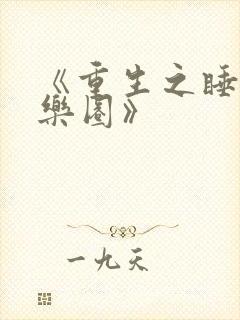 《重生之睡
樂園》
一九天